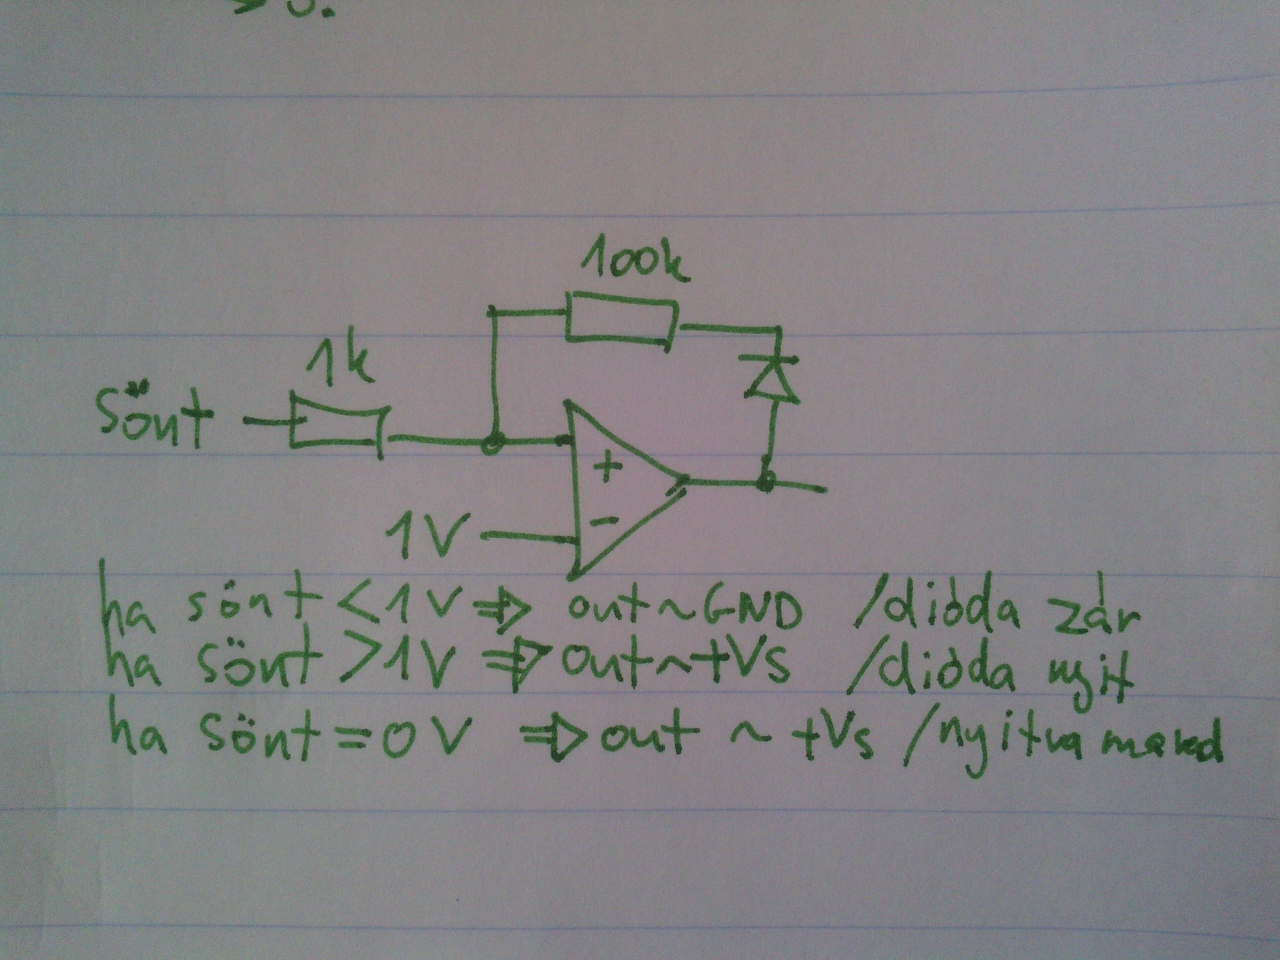 100k
1k
Sönt
+
1V
-
ha sönt < 1V ⇒ out ~ GND /dióda zár
ha sönt > 1V ⇒ out ~ +Vs /dióda nyit
ha sönt = 0V ⇒ out ~ +Vs /nyitva marad